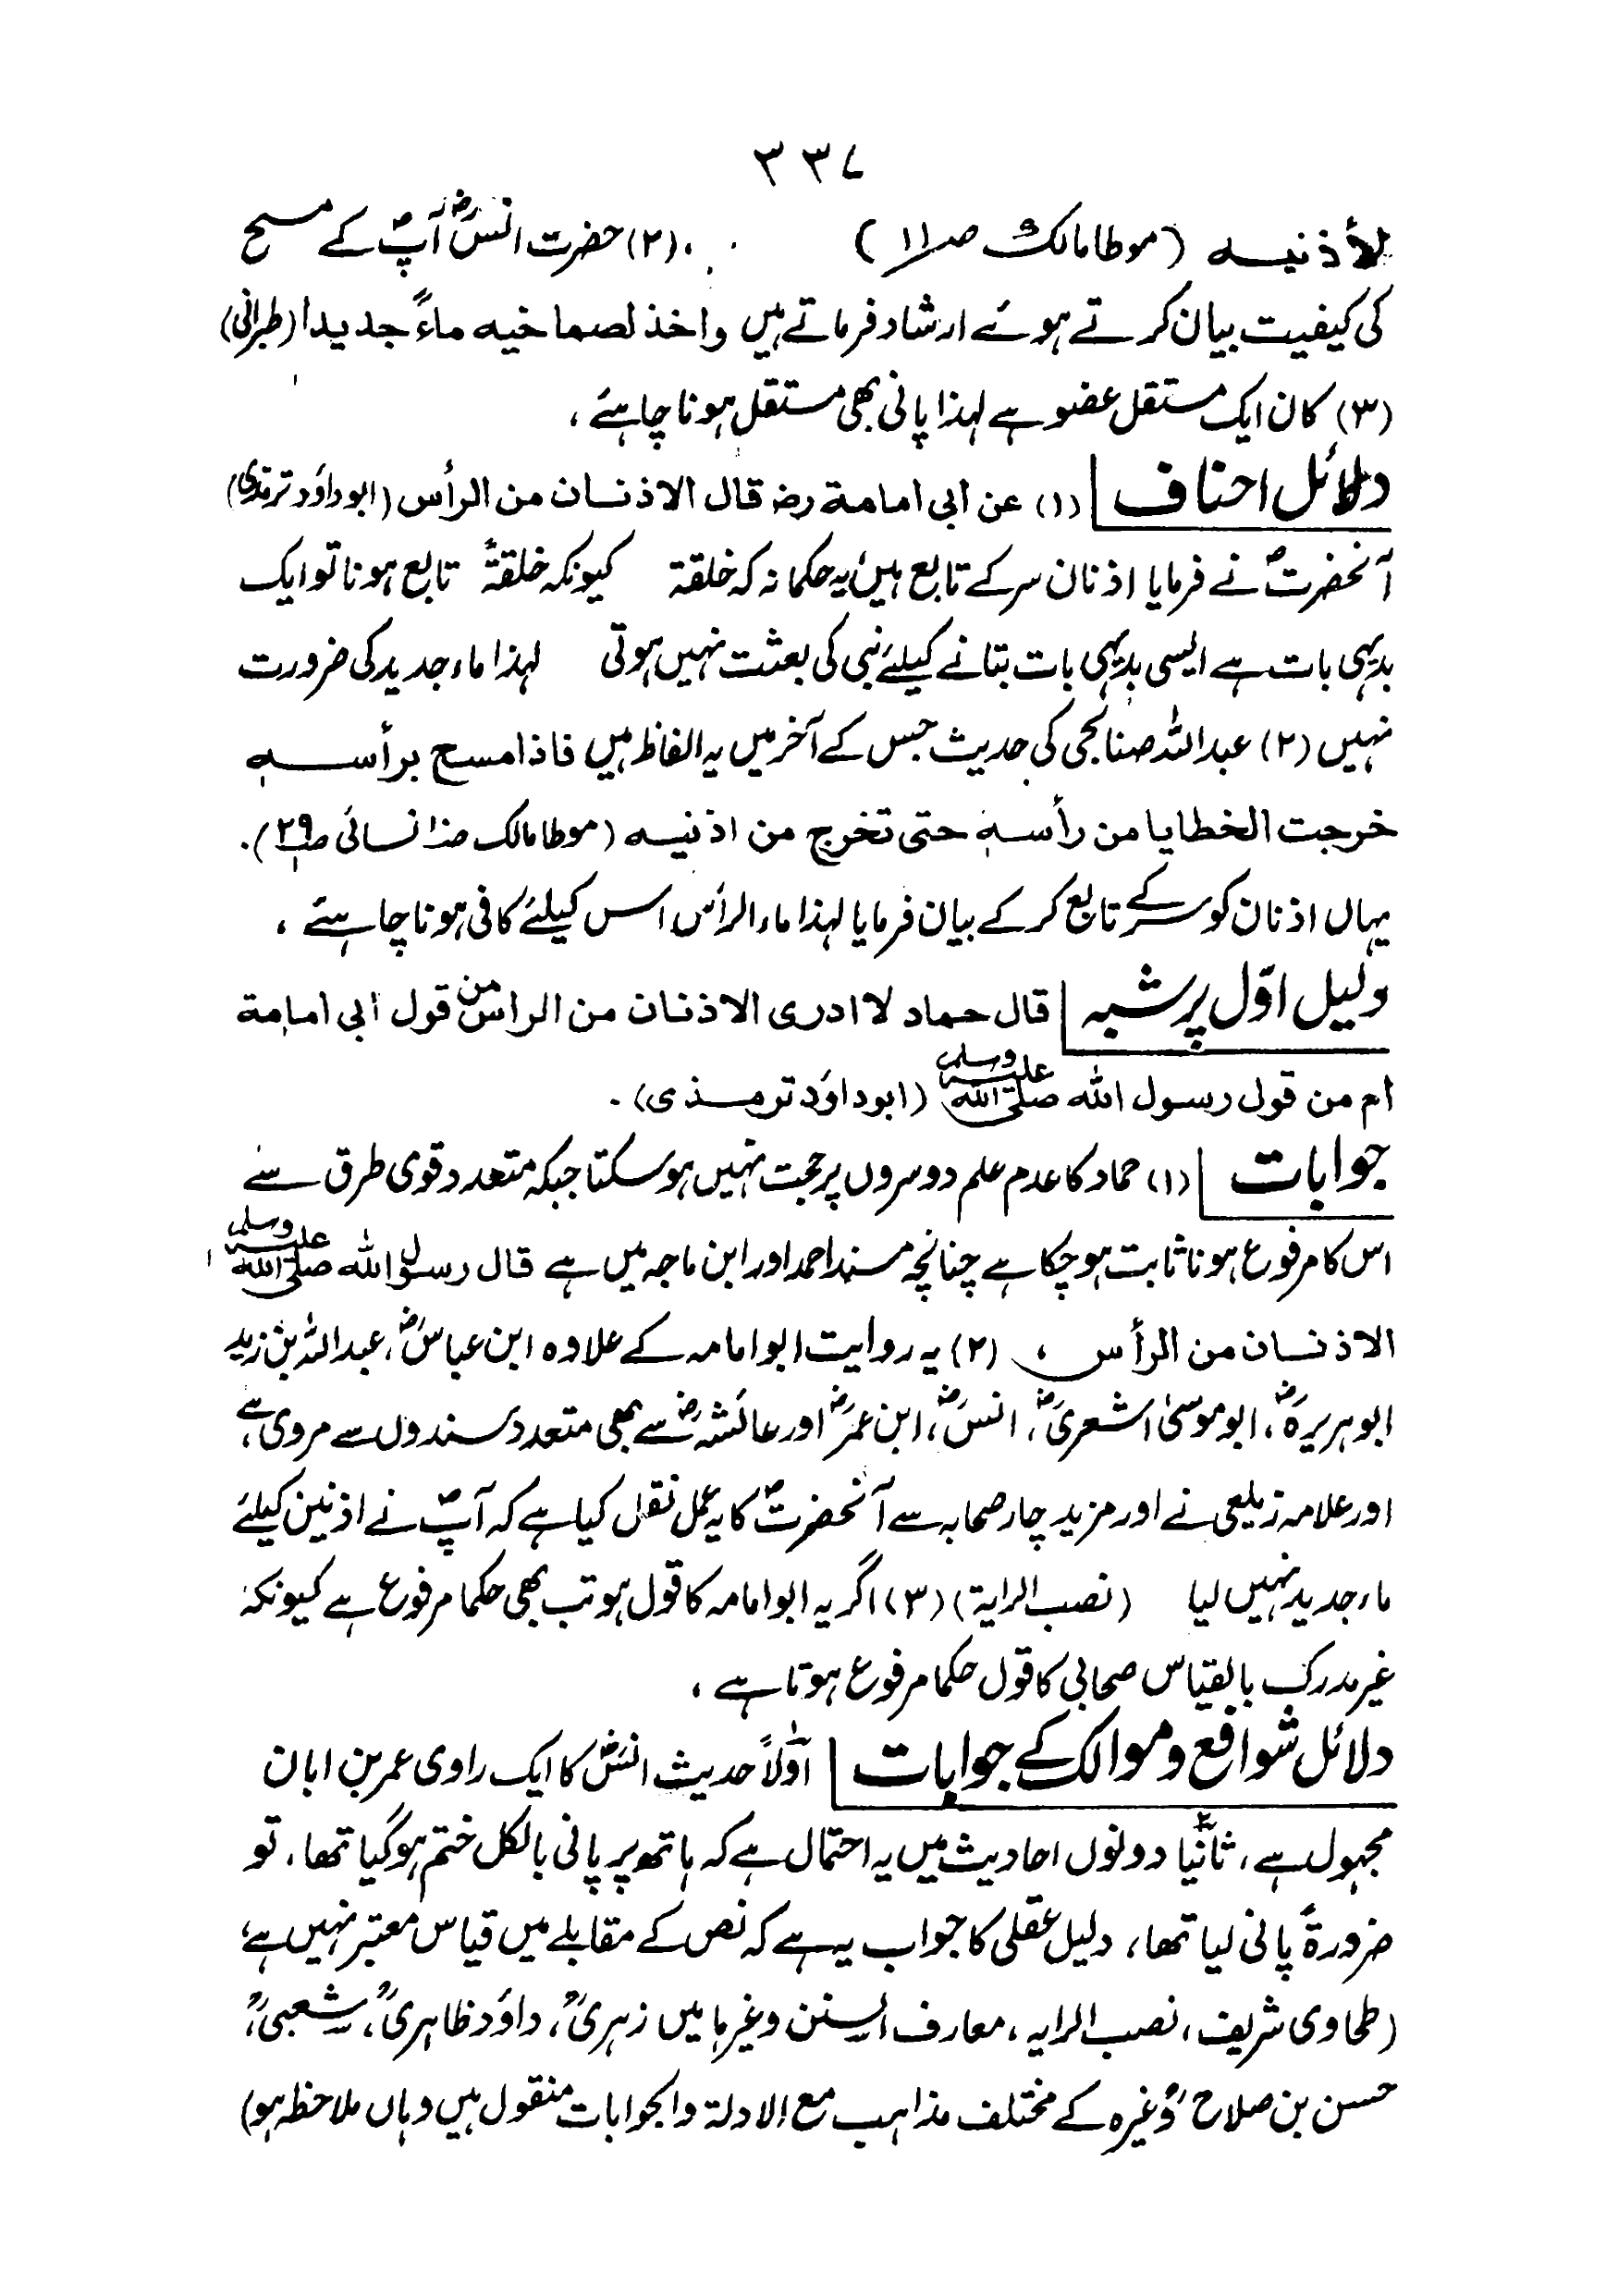 ۳۳۷
لأذنیہ (موطا مالکؒ صـ۱۱) (۲) حضرت انسؓ آپؐ کے مسح
کی کیفیت بیان کرتے ہوئے ارشاد فرماتے ہیں واخذ لصماخیہ ماءً جدیدا (طبرانی)
(۳) کان ایک مستقل عضو ہے لہذا پانی بھی مستقل ہونا چاہئے ،
دلائل احناف (۱) عن أبی امامة رضـ قال الاذنان من الرأس (ابوداؤد ترمذی)
آنحضرتؐ نے فرمایا اذنان سر کے تابع ہیں یہ حکما نہ کہ خلقة کیونکہ خلقةً تابع ہونا تو ایک
بدیہی بات ہے ایسی بدیہی بات بتانے کیلئے نبی کی بعثت نہیں ہوتی لہذا ماء جدید کی ضرورت
نہیں (۲) عبداللہ صنابحی کی حدیث جس کے آخر میں یہ الفاظ ہیں فاذا مسح برأسہ
خرجت الخطایا من رأسہ حتی تخرج من اذنیہ (موطا مالک صـ۱۰ نسائی صـ۲۹).
یہاں اذنان کو سر کے تابع کر کے بیان فرمایا لہذا ماء الرأس اس کیلئے کافی ہونا چاہئے ،
دلیل اوّل پر شبہ قال حماد لا ادری الاذنان من الراس من قول أبی امامة
أم من قول رسول اللہ صلی اللہ علیہ وسلم (ابوداؤد ترمذی) .
جوابات (۱) حماد کا عدم علم دوسروں پر حجت نہیں ہو سکتا جبکہ متعدد قوی طرق سے
اس کا مرفوع ہونا ثابت ہو چکا ہے چنانچہ مسند احمد اور ابن ماجہ میں ہے قال رسول اللہ صلی اللہ علیہ وسلم
الاذنان من الرأس ، (۲) یہ روایت ابو امامہ کے علاوہ ابن عباسؓ، عبداللہ بن زید
ابوہریرہؓ، ابو موسیٰ اشعریؓ، انسؓ، ابن عمرؓ اور عائشہؓ سے بھی متعدد سندوں سے مروی ہے،
اور علامہ زیلعی نے اور مزید چار صحابہ سے آنحضرتؐ کا یہ عمل نقل کیا ہے کہ آپؐ نے اذنین کیلئے
ماء جدید نہیں لیا (نصب الرایة) (۳) اگر یہ ابو امامہ کا قول ہو تب بھی حکما مرفوع ہے کیونکہ
غیر مدرک بالقیاس صحابی کا قول حکما مرفوع ہوتا ہے ،
دلائل شوافع و موالک کے جوابات أوّلاً حدیث انسؓ کا ایک راوی عمر بن ابان
مجہول ہے ، ثانیًا دونوں احادیث میں یہ احتمال ہے کہ ہاتھ پر پانی بالکل ختم ہو گیا تھا ، تو
ضرورةً پانی لیا تھا ، دلیل عقلی کا جواب یہ ہے کہ نص کے مقابلے میں قیاس معتبر نہیں ہے،
(طحاوی شریف ، نصب الرایہ ، معارف السنن وغیرہا میں زہریؒ، داؤد ظاہریؒ، شعبیؒ،
حسن بن صلاحؒ وغیرہ کے مختلف مذاہب مع الادلة والجوابات منقول ہیں وہاں ملاحظہ ہو)